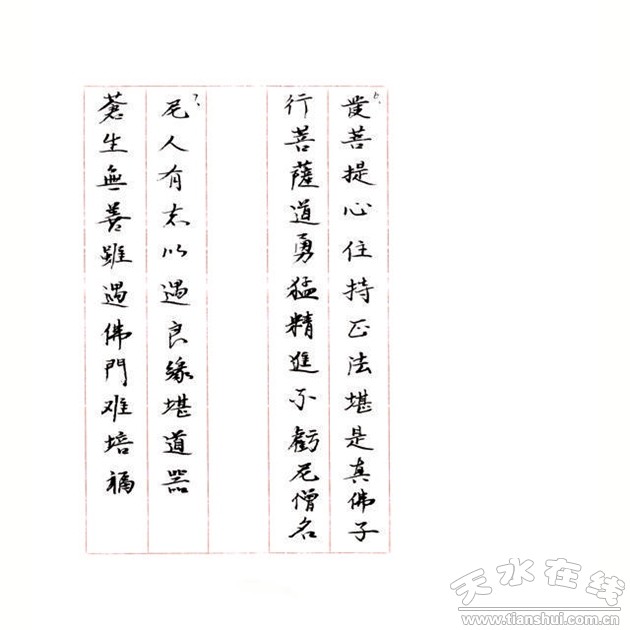 6、發菩提心住持正法堪是真佛子
行菩薩道勇猛精進不虧尼僧名
7、尼人有志以遇良緣堪道器
蒼生無善雖遇佛門难培福
天水在线
www.tianshui.com.cn